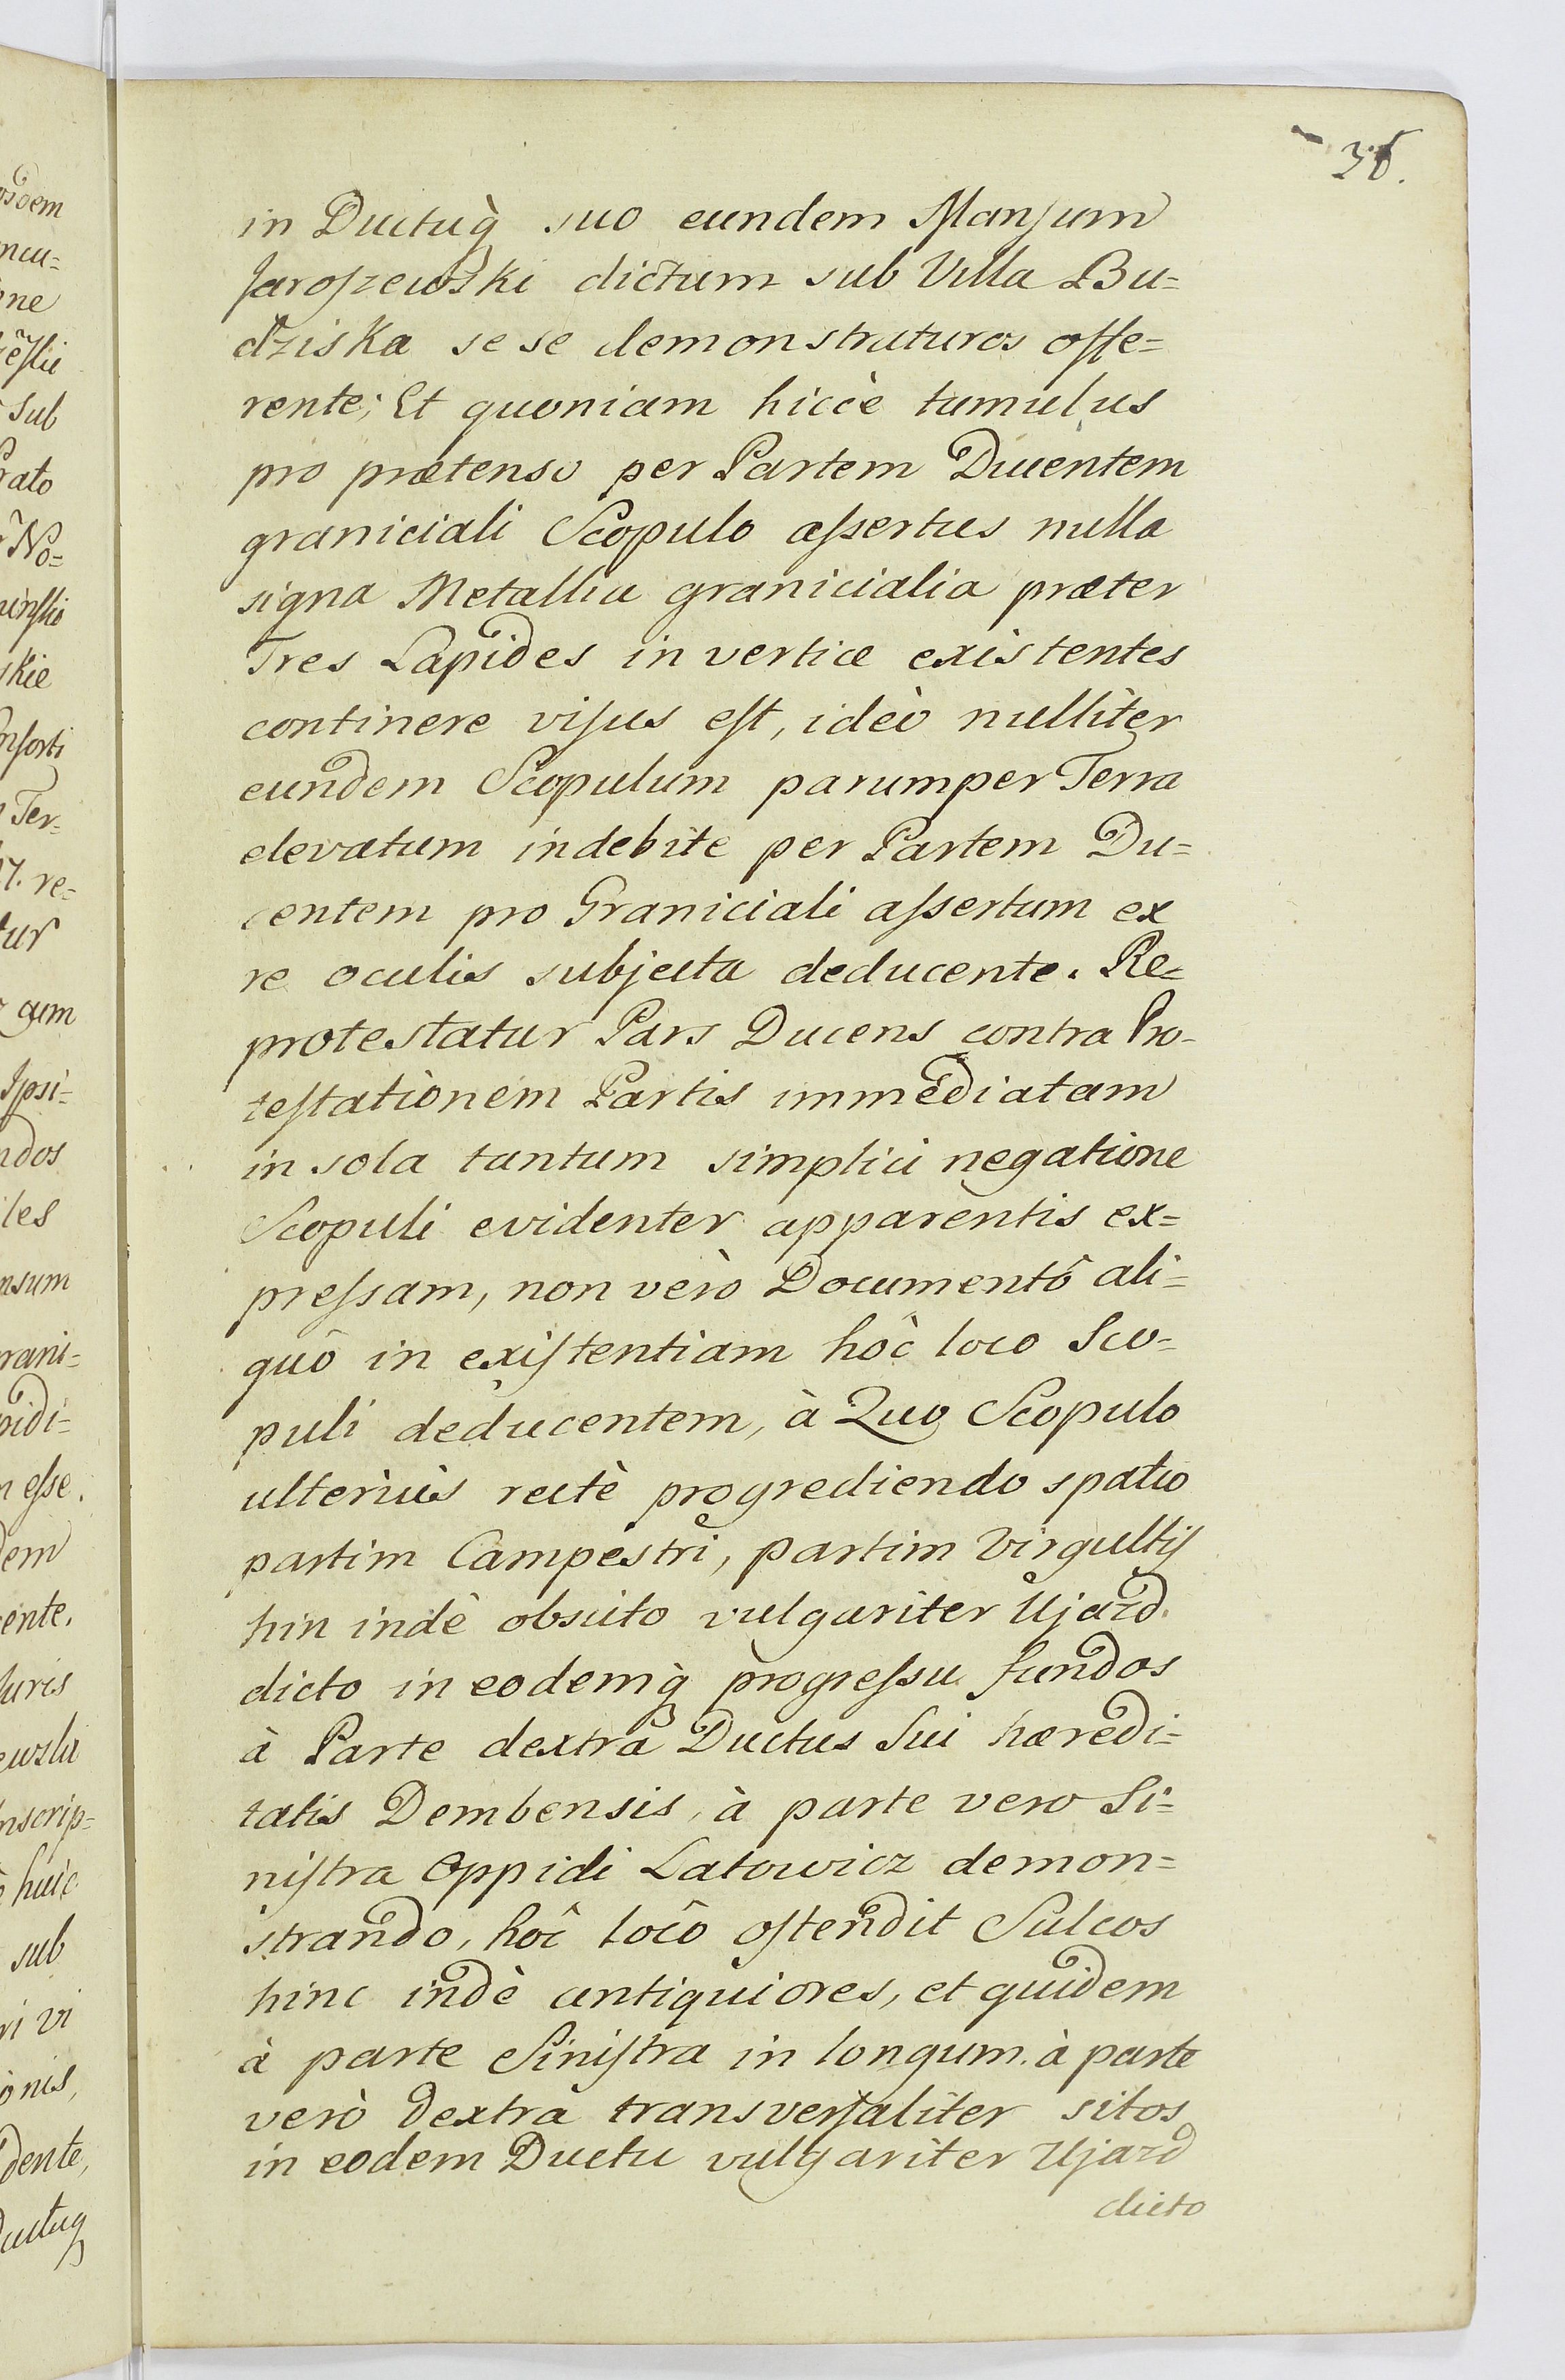 36.
in Ductuq̀ suo eundem Manſum
Jaroſzewski dictum sub Villa Bu=
dziska se se demonstraturos offe=
rente; Et quoniam hiccè tumulus
pro prætenso per Partem Ducentem
graniciali Scopulo aſsertus nulla
signa Metallica granicialia præter
Tres Lapides in vertice existentes
continere viſus eſt, ideò nullìter
eundem Scopulum parumper Terra
elevatum indebite per Partem Du=
centem pro Graniciali aſsertum ex
re oculis subjecta deducente. Re=
protestatur Pars Ducens contra Pro-
teſtationem Partis immediatam
in sola tantum simplici negatione
Scopuli evidenter apparentis ex=
preſsam, non verò Documentô ali=
quô in exiſtentiam hôc loco Sco=
puli deducentem, à Quo Scopulo
ulteriùs rectè progrediendo spatio
partim Campestri, partim Virgultis
hin indè obsito vulgariter Ujazd
dicto in eodemq̀ progreſsu fundos
à Parte dextrâ Ductus Sui hæredi=
tatis Dembensis, à parte vero Si=
niſtra Oppidi Latowicz demon=
strando, hôc locô oſtendit Sulcos
hinc indè antiquiores, et quidem
à parte Siniſtra in longum. à parte
verò dextrâ transverſaliter sitos
in eodem Ductu vulgariter Ujazd
dicto
osdem
ne
Sub
No=
skie
Ter=
re=
tur
Ipsi=
ndos
rani=
eſse.
dem
uris
nscrip=
huic
sub
vi
onis,
dente,